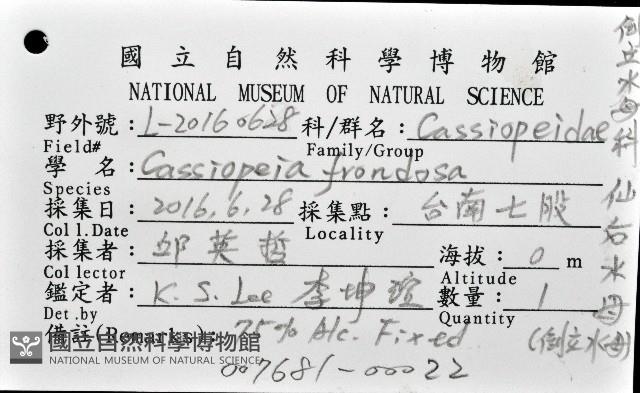 國立自然科學博物館
NATIONAL MUSEUM OF NATURAL SCIENCE
野外號：L-20160628 科/群名：Cassiopeidae
Field# Family/Group
學 名：Cassiopeia frondosa
Species
採集日：2016.6.28 採集點：台南七股
Coll.Date Locality
採集者：邱英哲 海拔：0 m
Collector Altitude
鑑定者：K. S. Lee 李坤瑄 數量：1
Det.by Quantity
備註(Remarks)：75% Alc. Fixed
007681-00022
倒立水母科 仙后水母
(倒立水母)
國立自然科學博物館
NATIONAL MUSEUM OF NATURAL SCIENCE